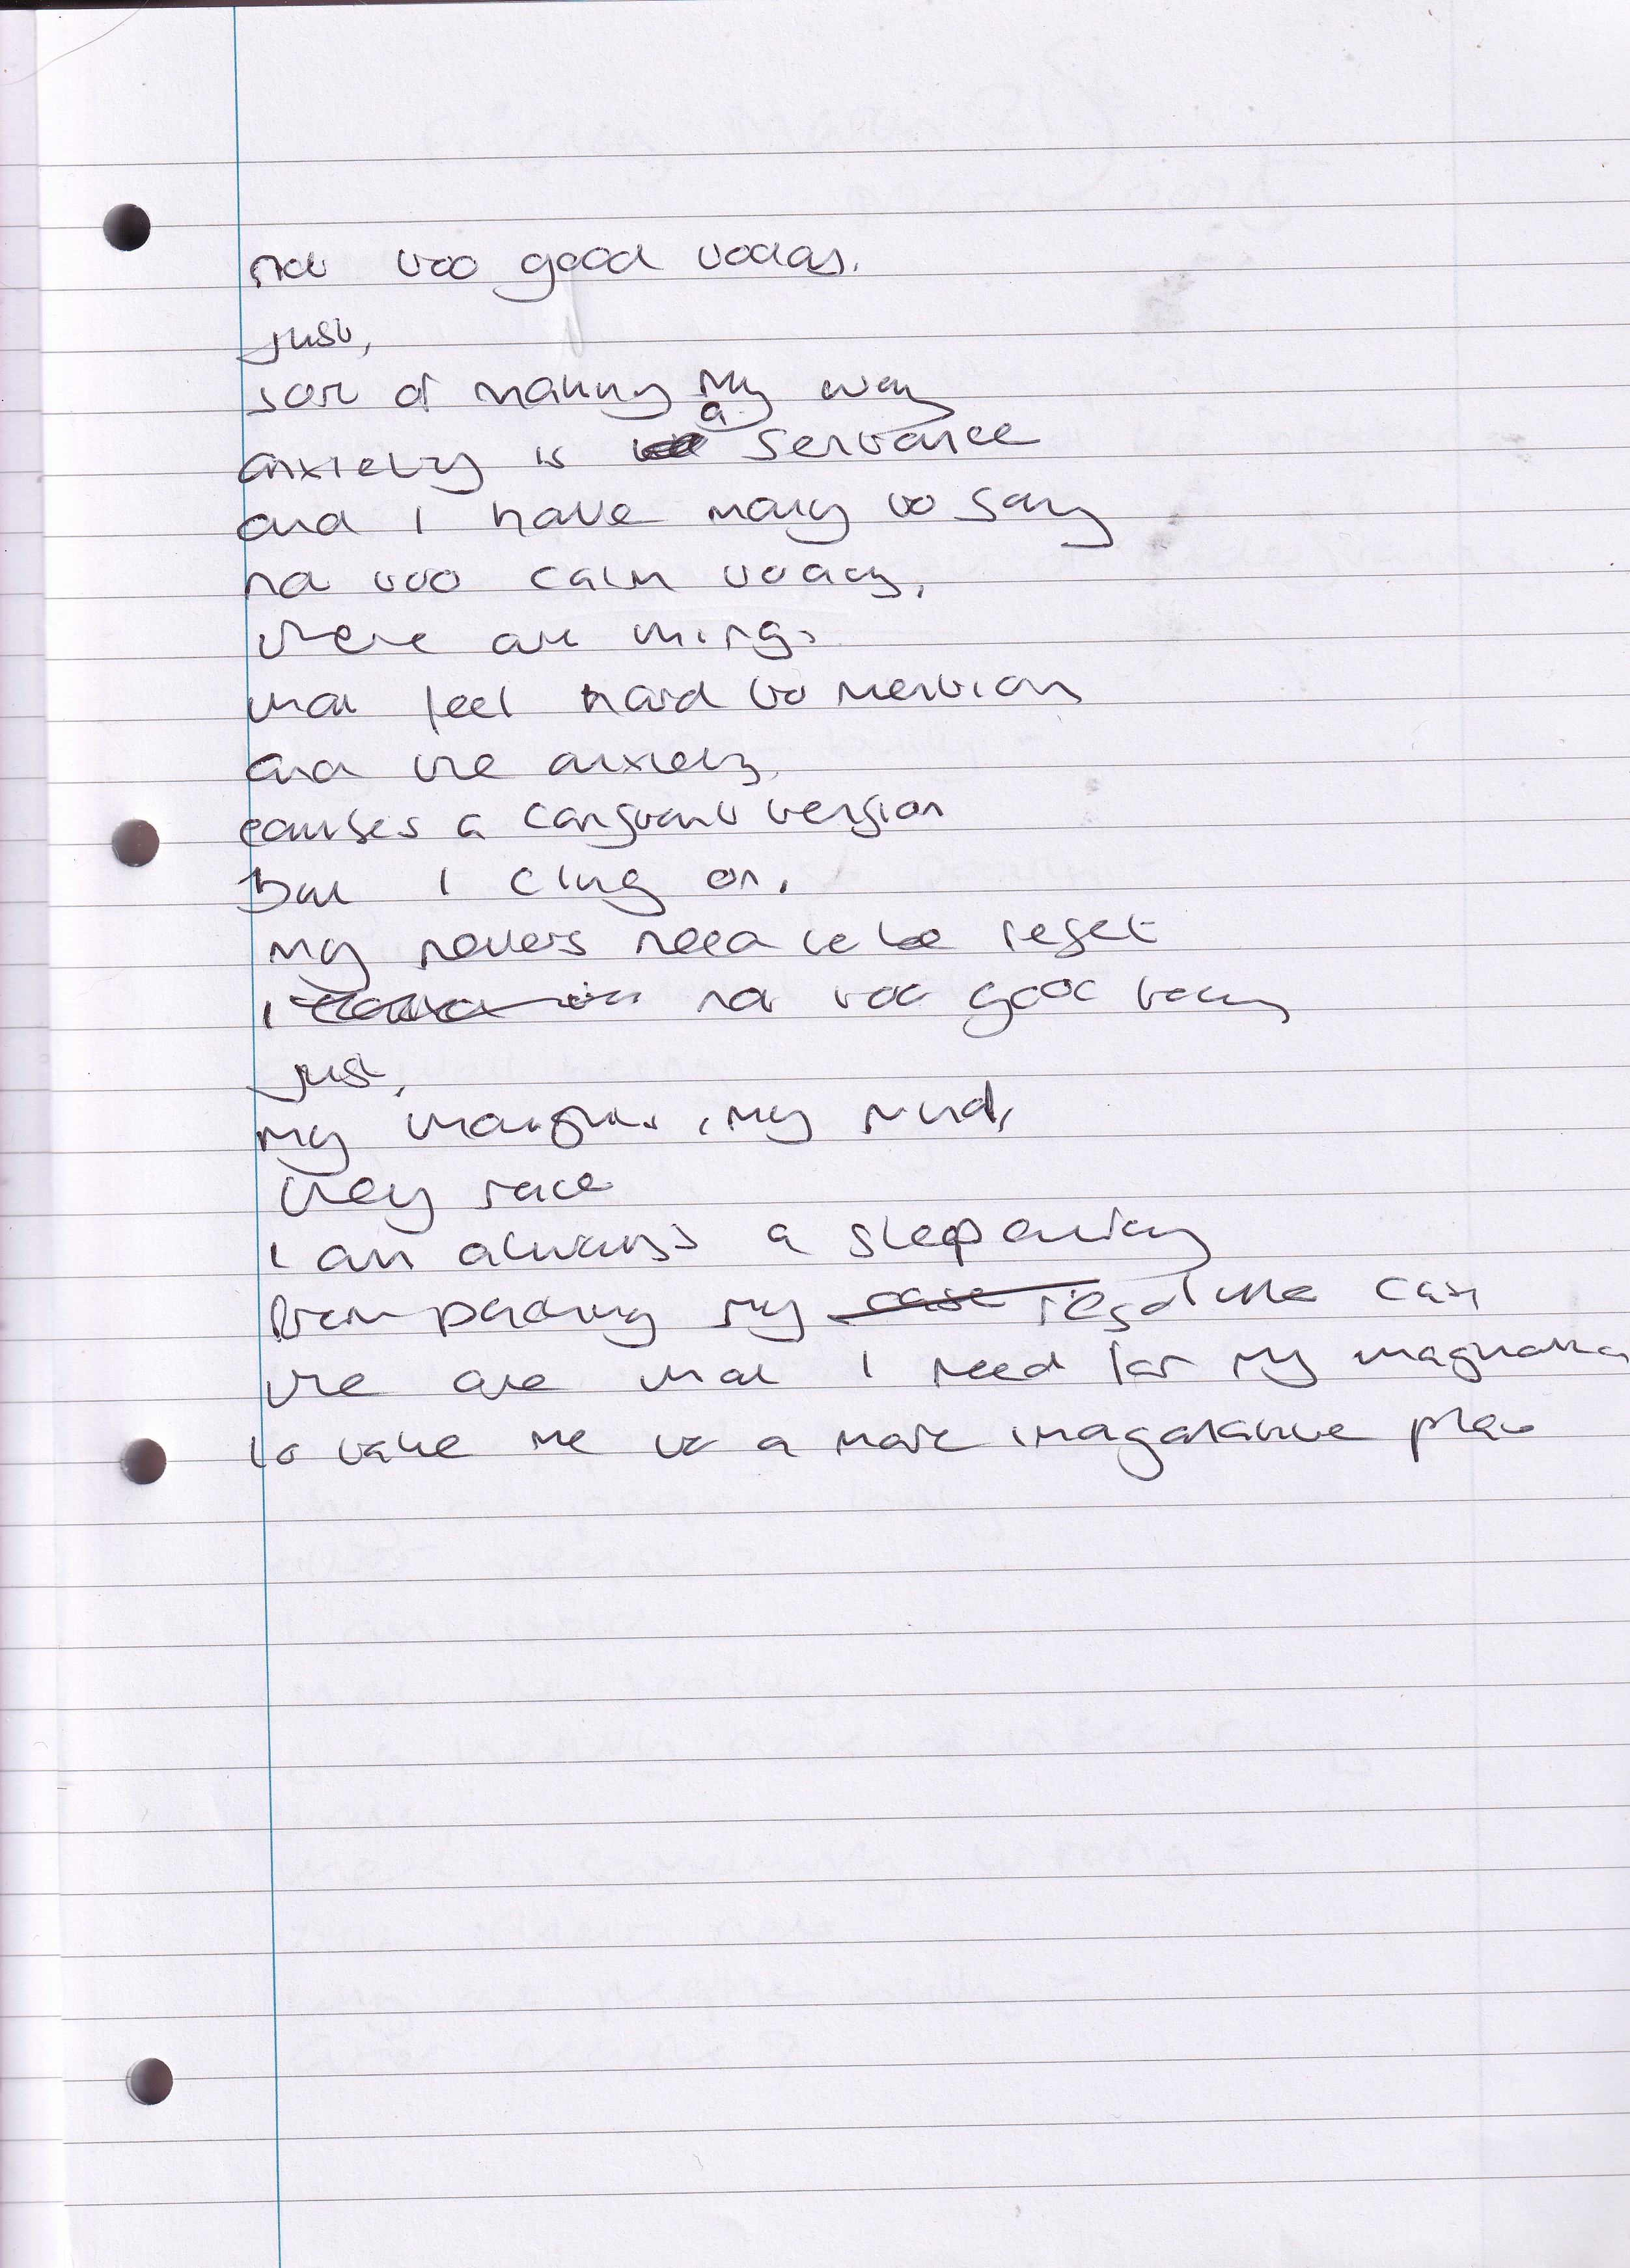 not too good today.
just,
sort of making my way
anxiety is a sentance
and I have many to say
not too calm today,
there are things
that feel hard to mention
and the anxiety
causes a constant tension
but I cling on.
my nevers need to be reset
I not too good today
just,
my thoughts, my mind,
they race
I am always a step away
from packing my resolute case
the one that I need for my
to take me to a more place